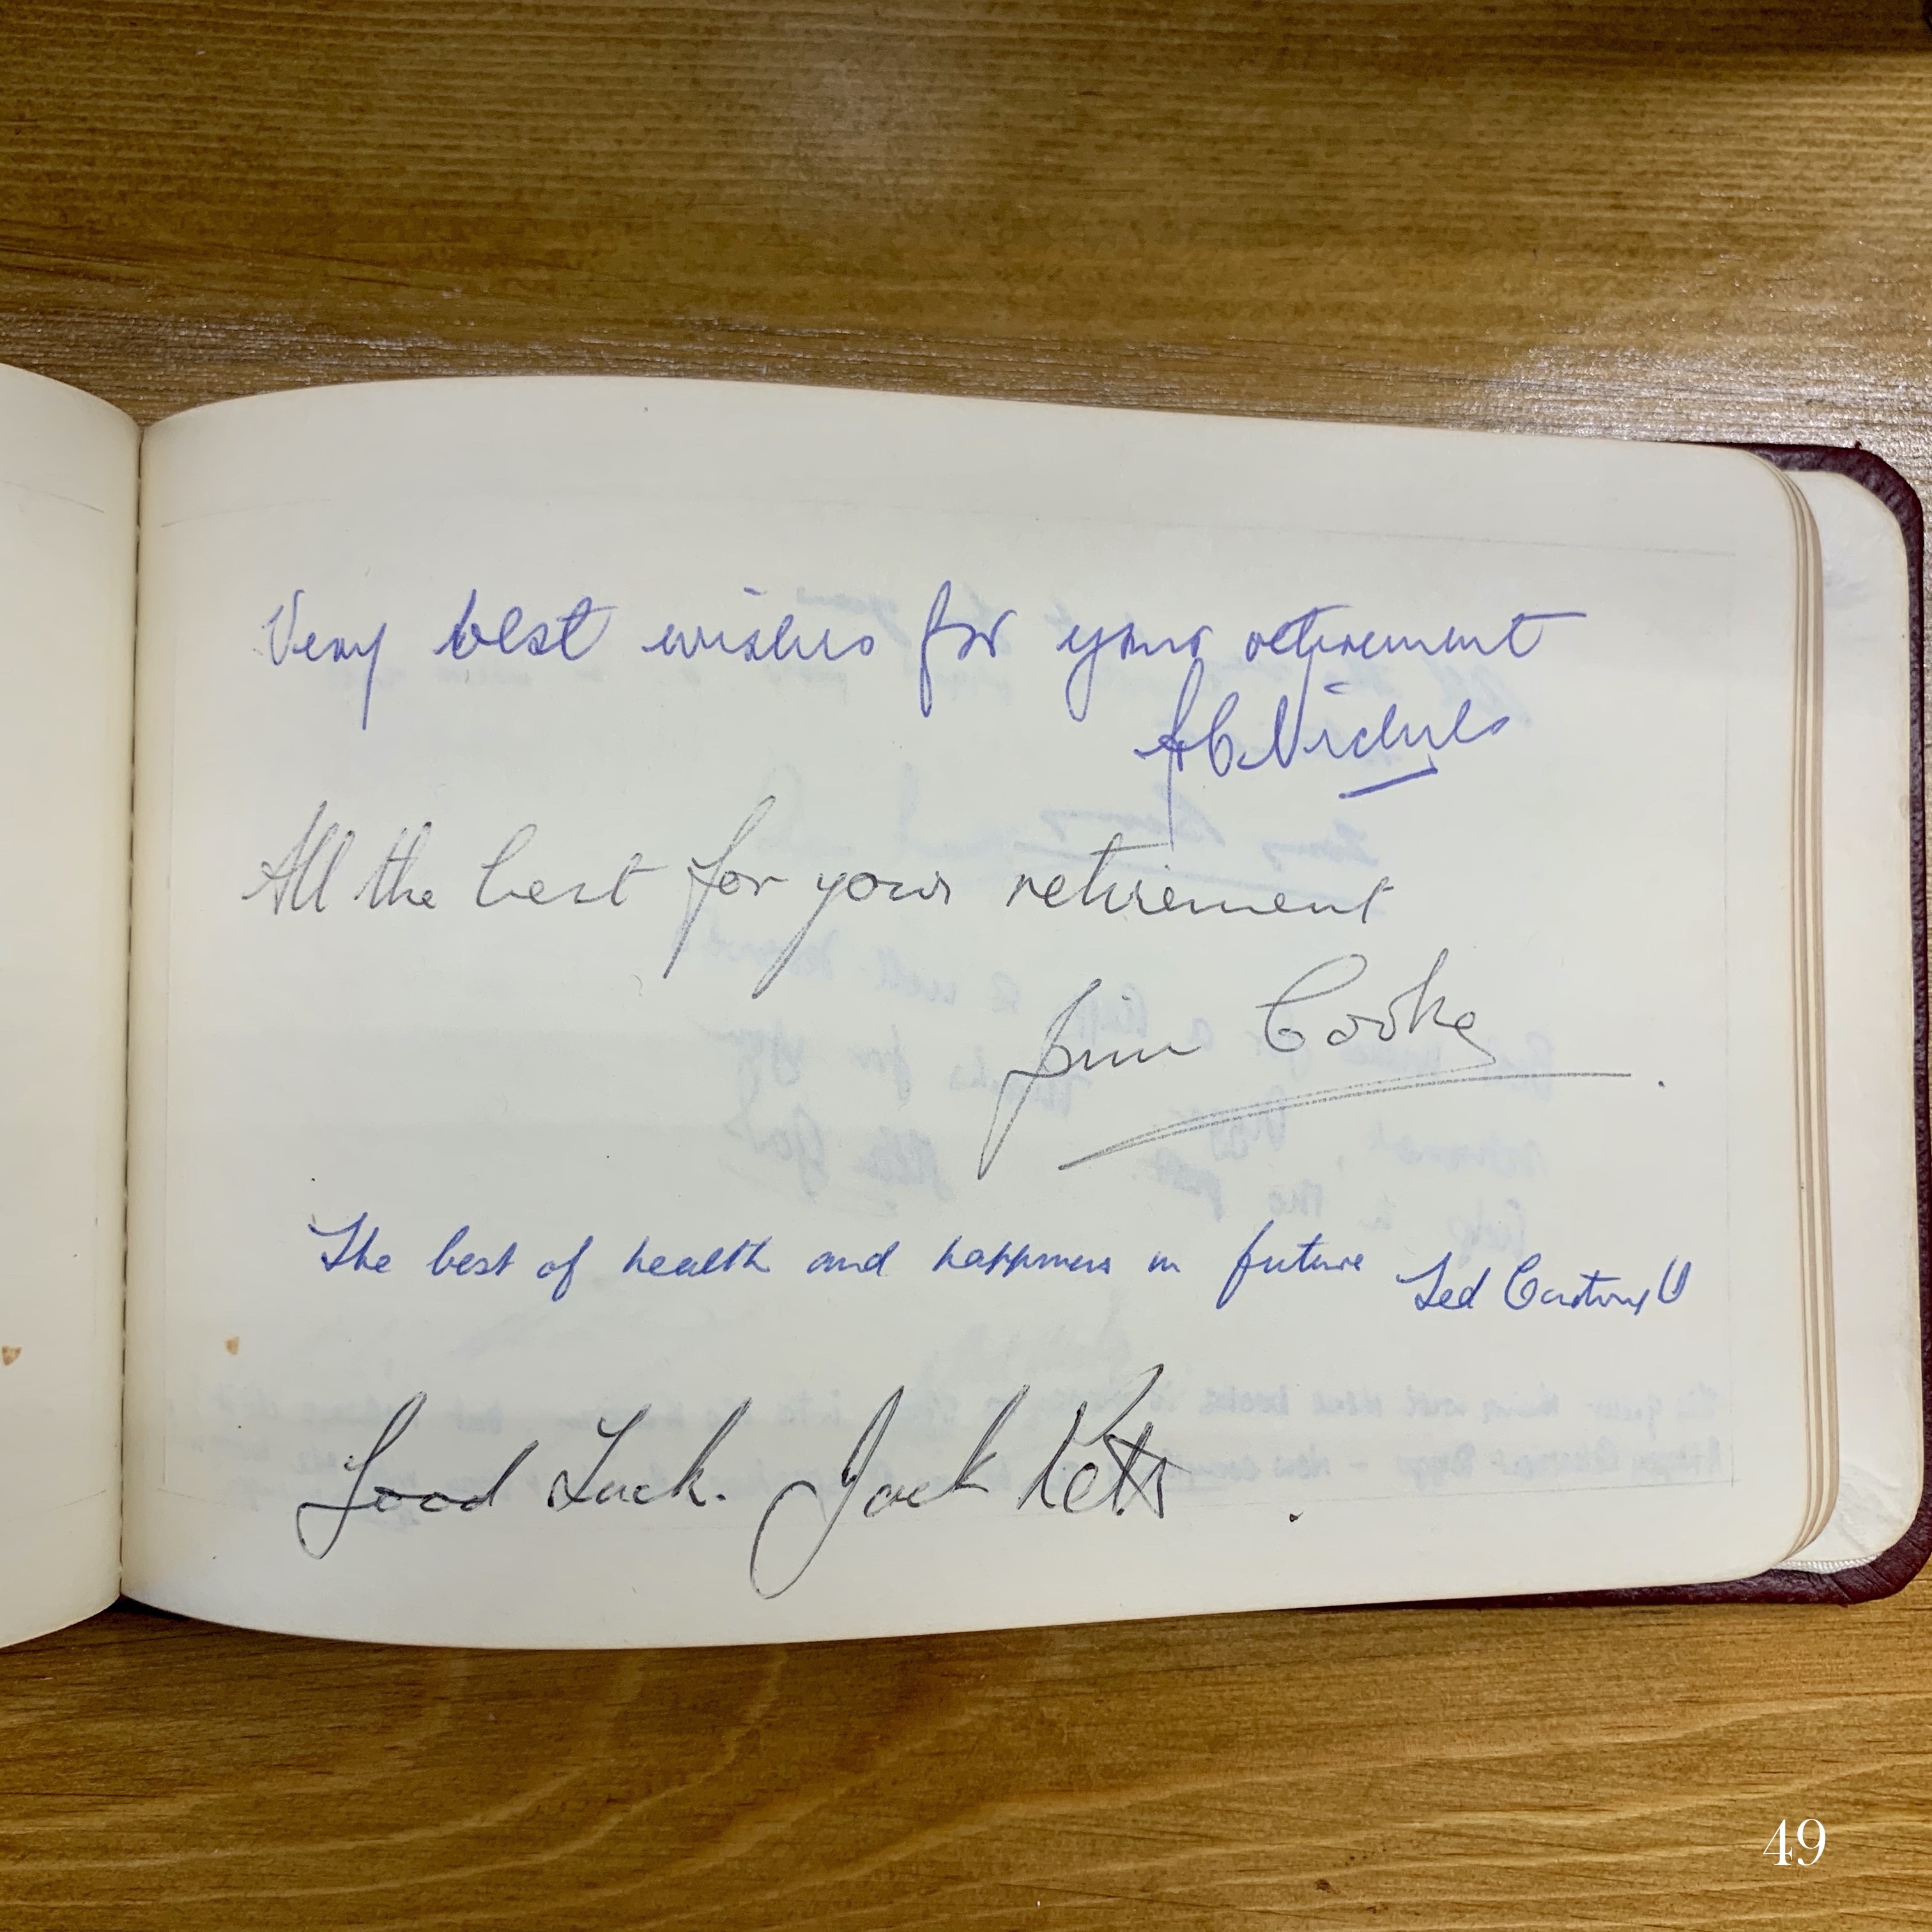 Very best wishes for your retirement
A C Nichols
All the best for your retirement
Jim Cooke
The best of health and happiness in future Ted
Good Luck. Jack Ketts
49